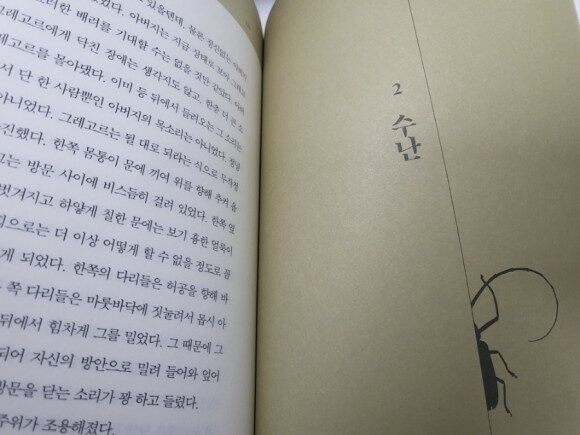 있을텐데, 물론 정신없는 아버지
러한 배려를 기대할 수는 없을 것만 같았다. 아버
그레고르에게 닥친 장애는 생각지도 않고, 한층 더 큰 소
고르를 몰아댔다. 이미 등 뒤에서 들려오는 그 소리는
서 단 한 사람뿐인 아버지의 목소리는 아니었다. 정말
아니었다. 그레고르는 될 대로 되라는 식으로 무작정
진했다. 한쪽 몸통이 문에 끼여 위를 향해 추켜 올
는 방문 사이에 비스듬히 걸려 있었다. 한쪽 옆
벗겨지고 하얗게 칠한 문에는 보기 흉한 얼룩이
으로는 더 이상 어떻게 할 수 없을 정도로 꼼
게 되었다. 한쪽의 다리들은 허공을 향해 바
쪽 다리들은 마룻바닥에 짓눌려서 몹시 아
뒤에서 힘차게 그를 밀었다. 그 때문에 그
되어 자신의 방안으로 밀려 들어와 있어
방문을 닫는 소리가 쾅 하고 들렸다.
주위가 조용해졌다.
2
수난